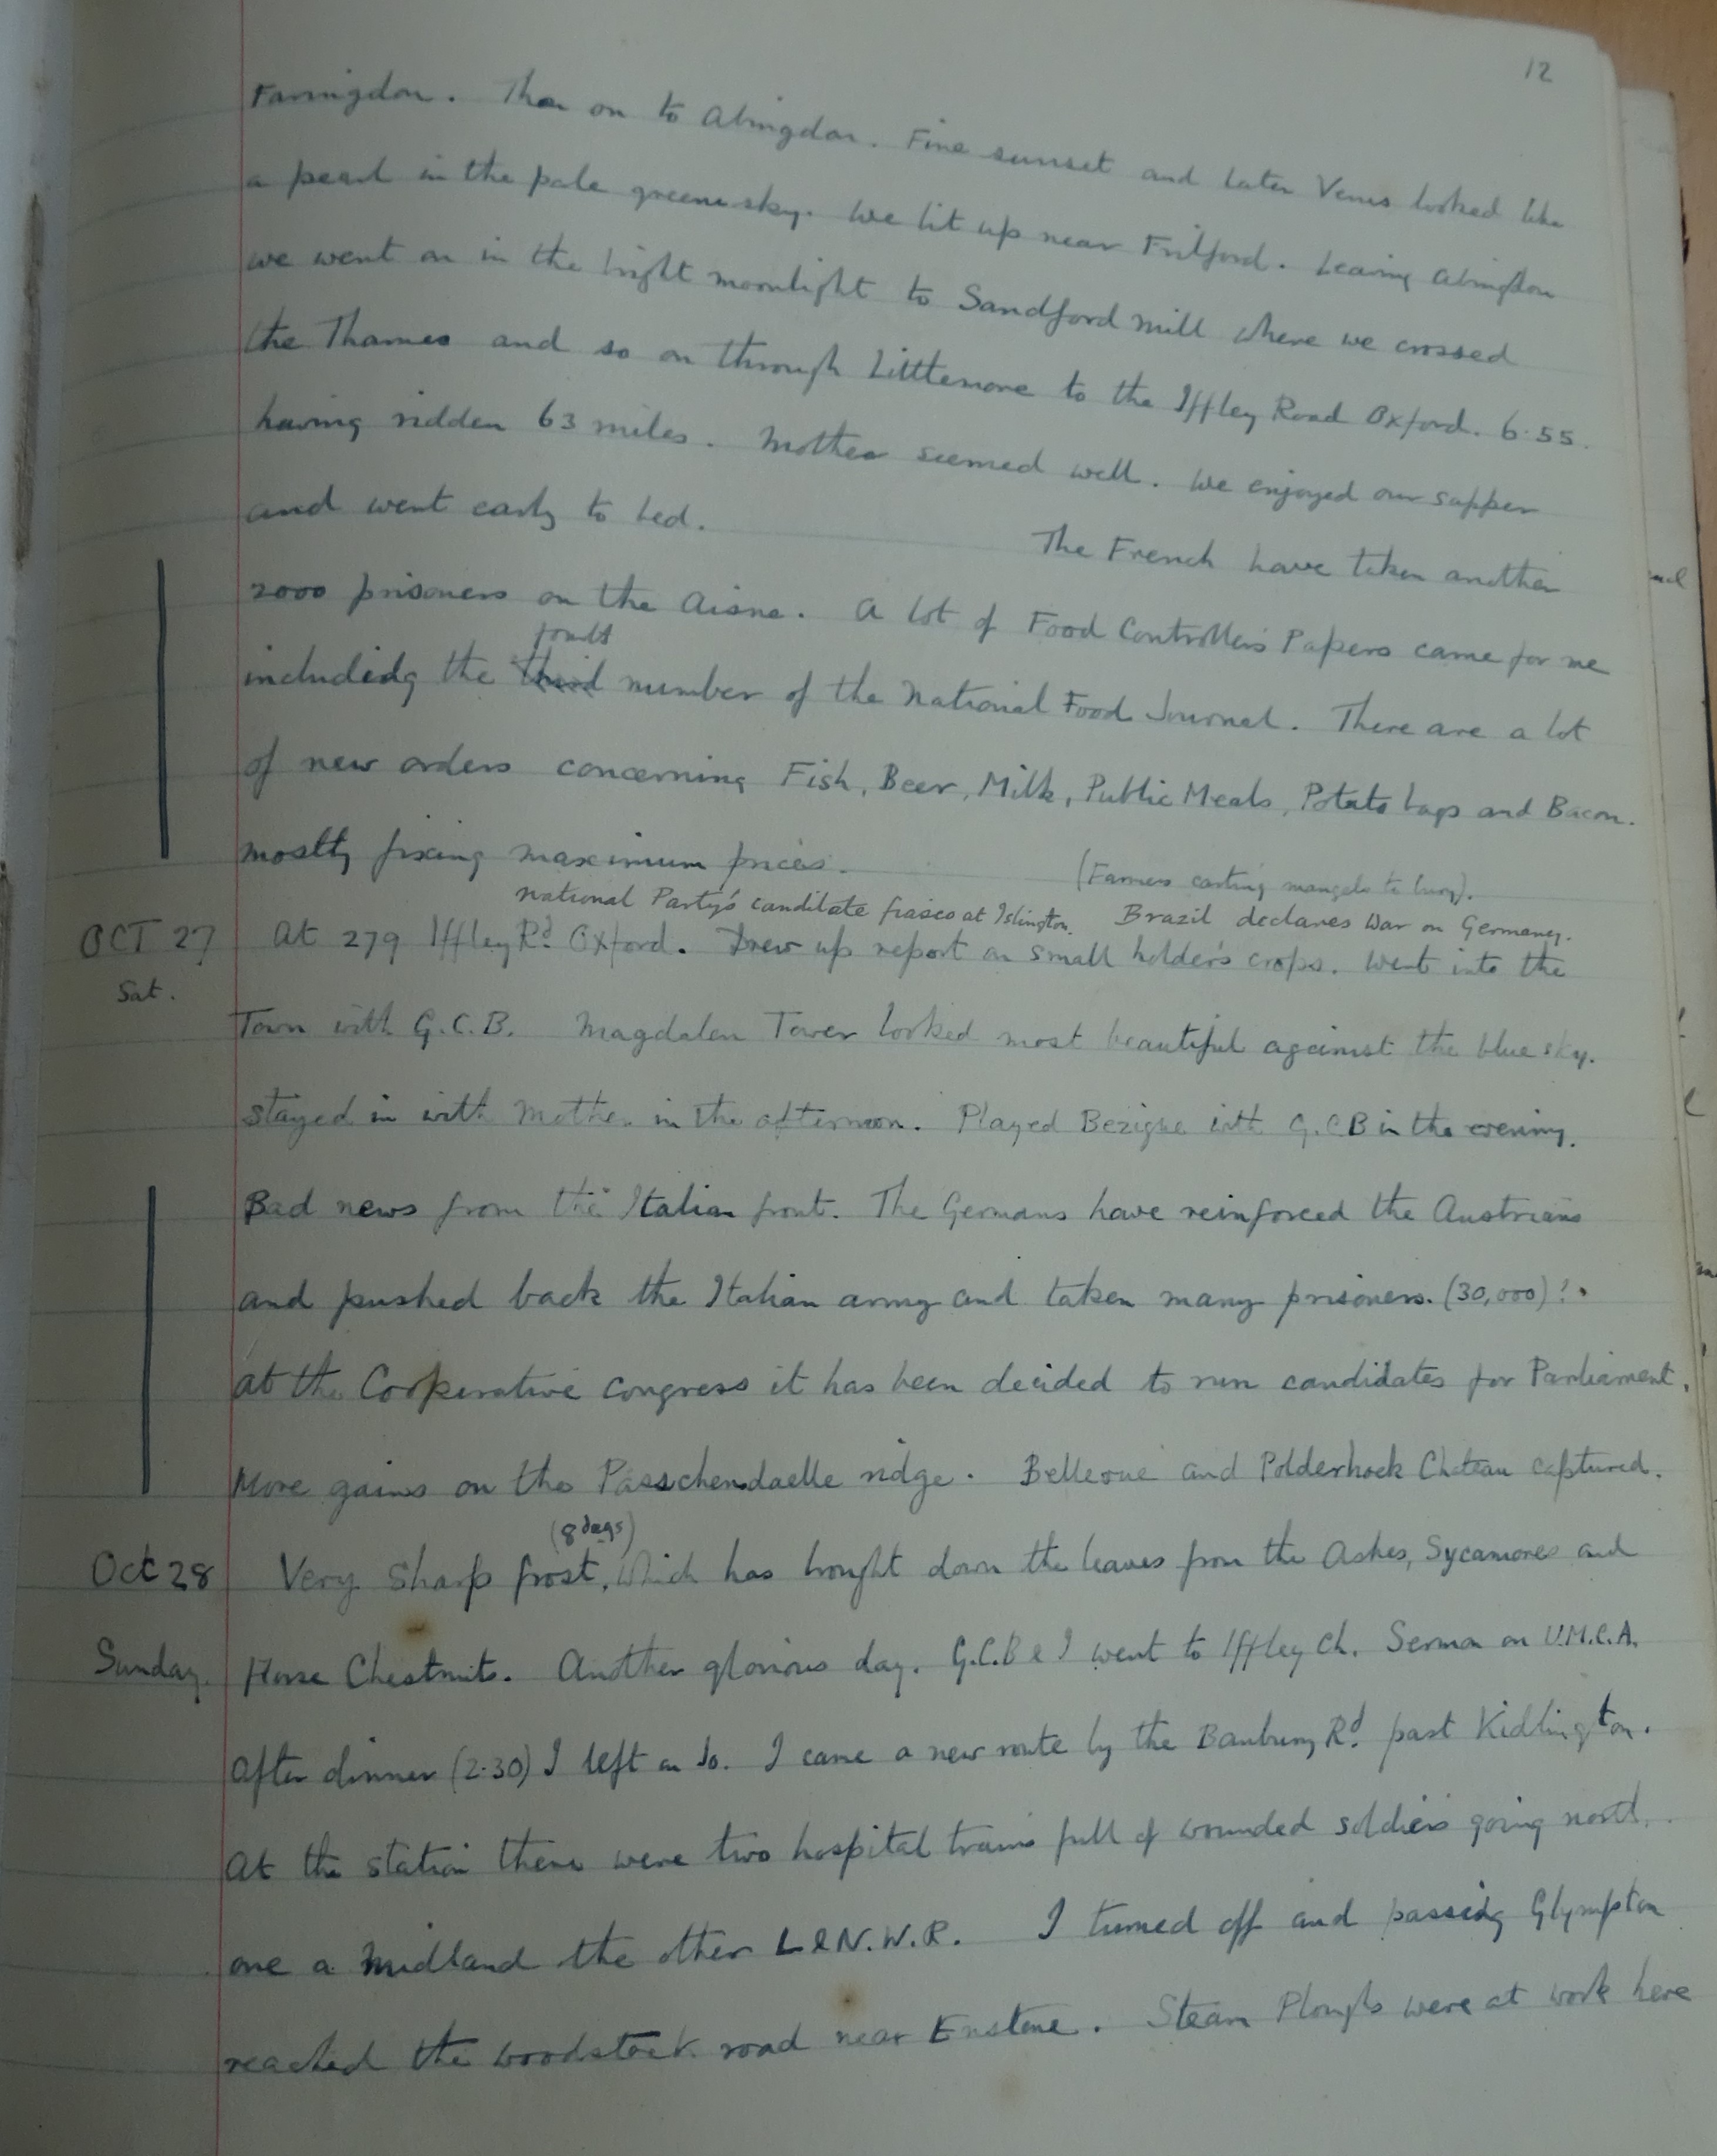 12
Farringdon. Then on to Abingdon. Fine sunset and later Venus looked like
a pearl in the pale green sky. We lit up near Frilford. Leaving Abingdon
we went on in the bright moonlight to Sandford mill where we crossed
the Thames and so on through Littlemore to the Iffley Road Oxford. 6.55.
having ridden 63 miles. Mother seemed well. We enjoyed our supper
and went early to bed. The French have taken another
2000 prisoners on the Aisne. A lot of Food Controllers Papers came for me
fourth
includidg the third number of the National Food Journal. There are a lot
of new orders concerning Fish, Beer, Milk, Public Meals, Potato bags and Bacon.
mostly fixing maximum prices. (Farmers carting mangels to bury).
National Party's candidate fiasco at Islington. Brazil declares War on Germany.
OCT 27 At 279 Iffley Rd Oxford. Drew up report on small holder's crops. Went into the
Sat.
Town with G.C.B. Magdalen Tower looked most beautiful against the blue sky.
Stayed in with Mother in the afternoon. Played Bezique with G.C.B in the evening.
Bad news from the Italian front. The Germans have reinforced the Austrians
and pushed back the Italian army and taken many prisoners. (30,000)!.
At the Cooperative Congress it has been decided to run candidates for Parliament.
More gains on the Passchendaelle ridge. Bellevue and Polderhoek Chateau captured.
(8 degs)
Oct 28 Very sharp frost, which has brought down the leaves from the Ashes, Sycamores and
Sunday. Horse Chestnuts. Another glorious day. G.C.B & I went to Iffley Ch. Sermon on U.M.C.A.
After dinner (2.30) I left on Jo. I came a new route by the Banbury Rd. past Kidlington.
At the station there were two hospital trains full of wounded soldiers going north,
one a Midland the other L&N.W.R. I turned off and passidg Glympton
reached the Woodstock road near Enstone. Steam Ploughs were at work here